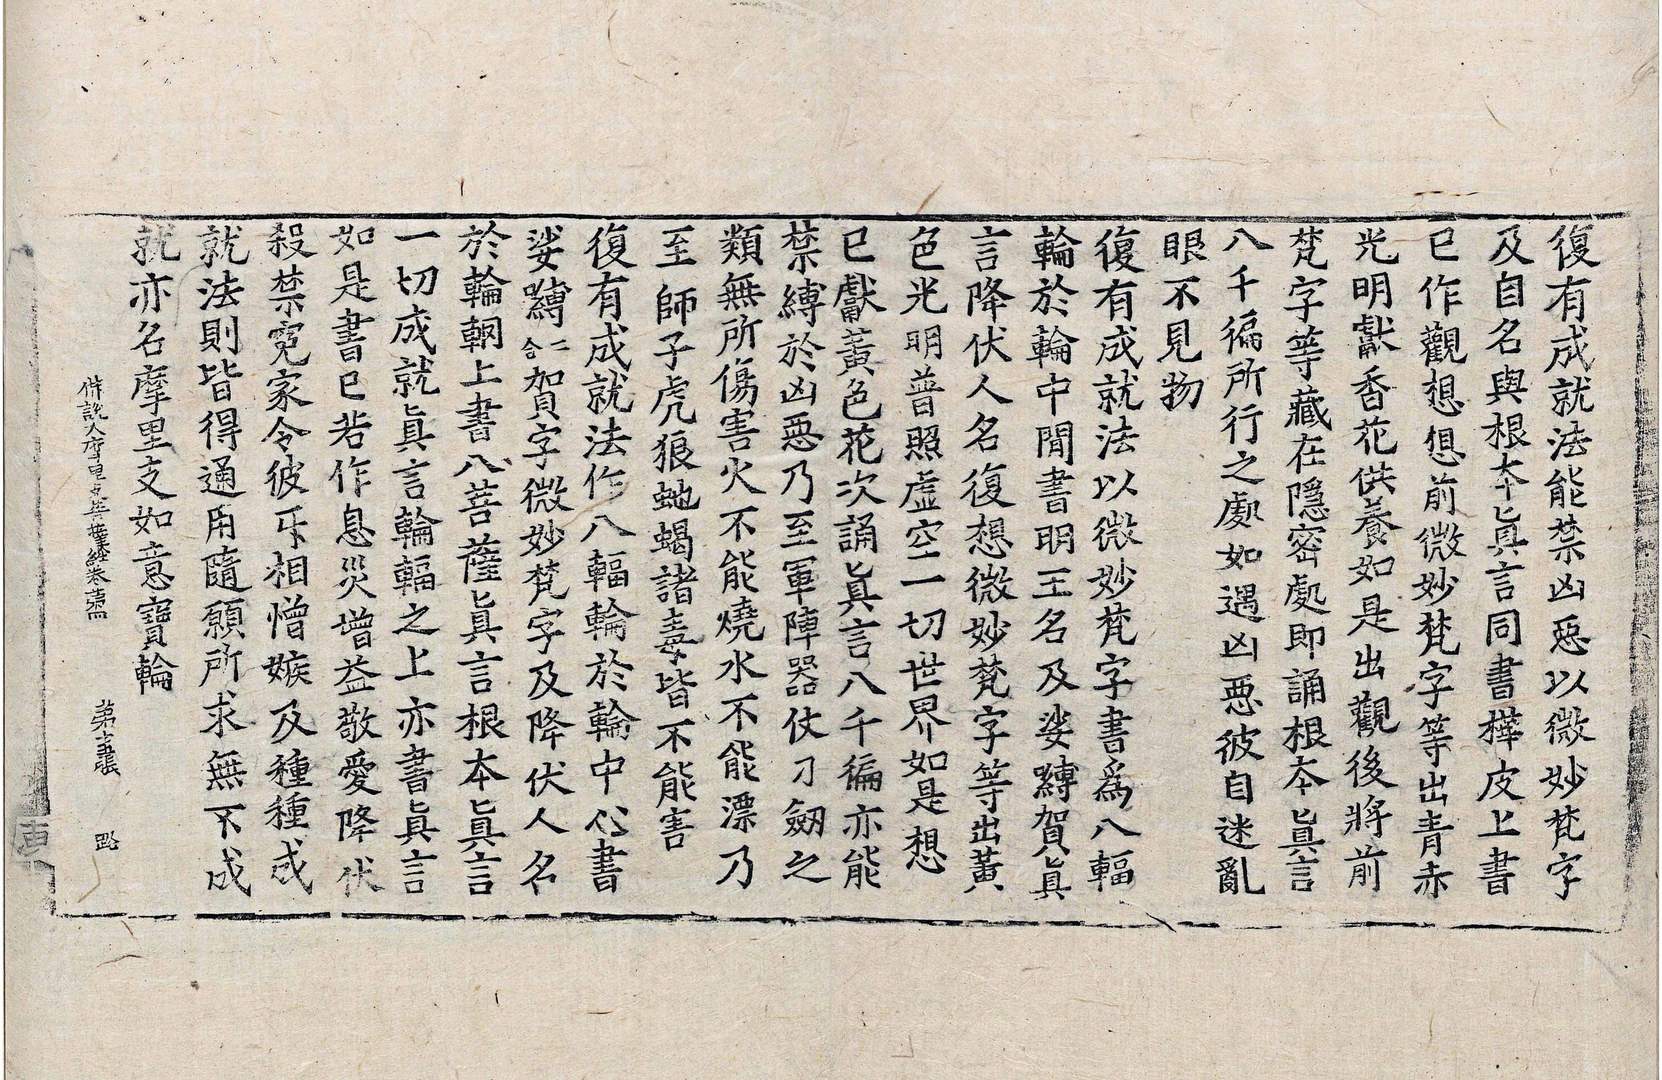 復有成就法能禁凶惡以微妙梵字
及自名與根本眞言同書樺皮上書
已作觀想想前微妙梵字等出青赤
光明獻香花供養如是出觀後將前
梵字等藏在隱密處即誦根本眞言
八千徧所行之處如遇凶惡彼自迷亂
眼不見物
復有成就法以微妙梵字書爲八輻
輪於輪中閒書明王名及娑嚩賀眞
言降伏人名復想微妙梵字等出黃
色光明普照虛空一切世界如是想
已獻黃色花次誦眞言八千徧亦能
禁縛於凶惡乃至軍陣器仗刀劒之
類無所傷害火不能燒水不能漂乃
至師子虎狼虵蝎諸毒皆不能害
復有成就法作八輻輪於輪中心書
娑嚩二合賀字微妙梵字及降伏人名
於輪輞上書八菩薩眞言根本眞言
一切成就眞言輪輻之上亦書眞言
如是書已若作息災增益敬愛降伏
殺禁寃家令彼互相憎嫉及種種成
就法則皆得通用隨願所求無不成
就亦名摩里支如意寶輪
佛說大摩里支菩薩經卷 第 張